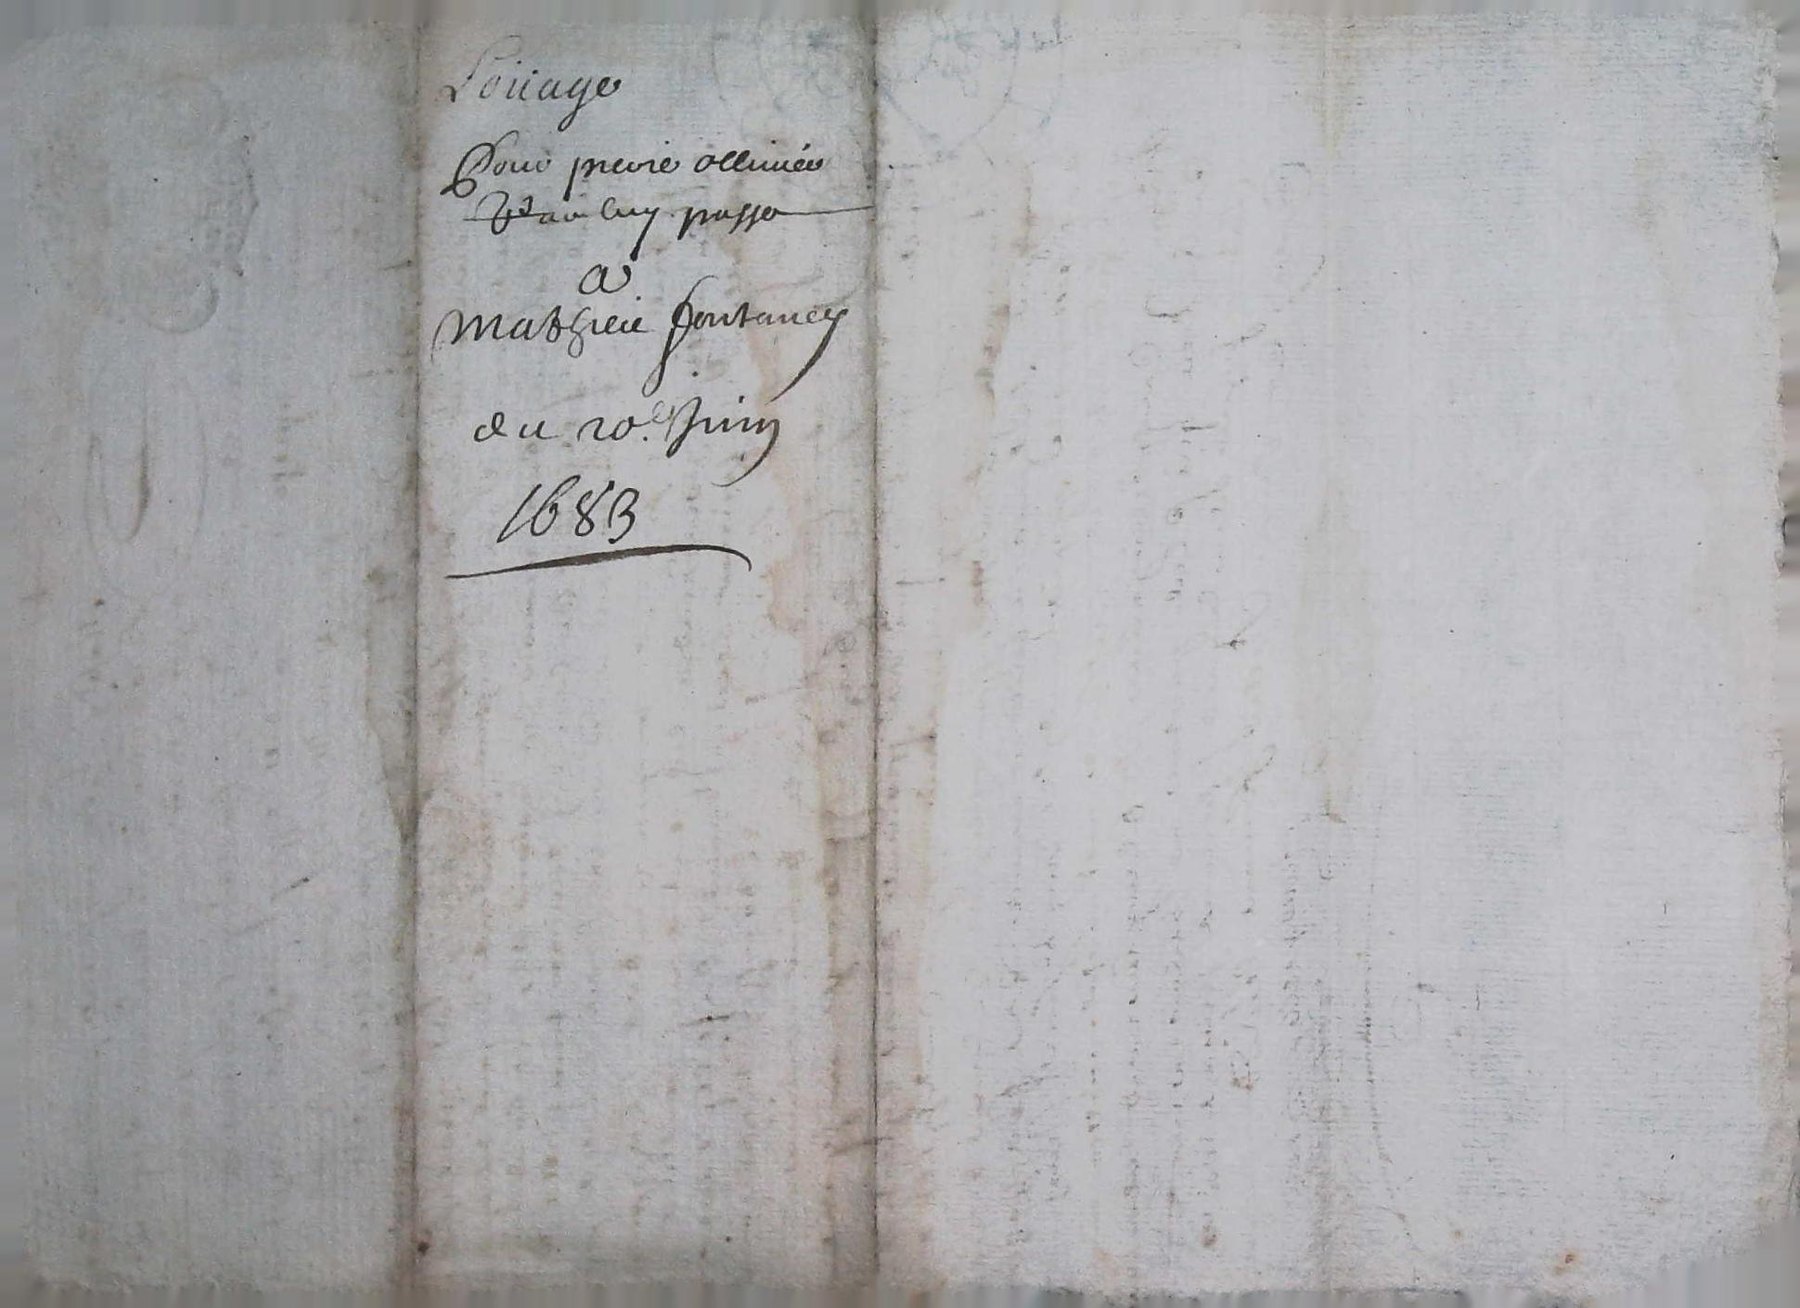 Loüage
Pour pierre ollivier
par luy passe
a
Mathieu fontaney
du 20.e Juin
1683